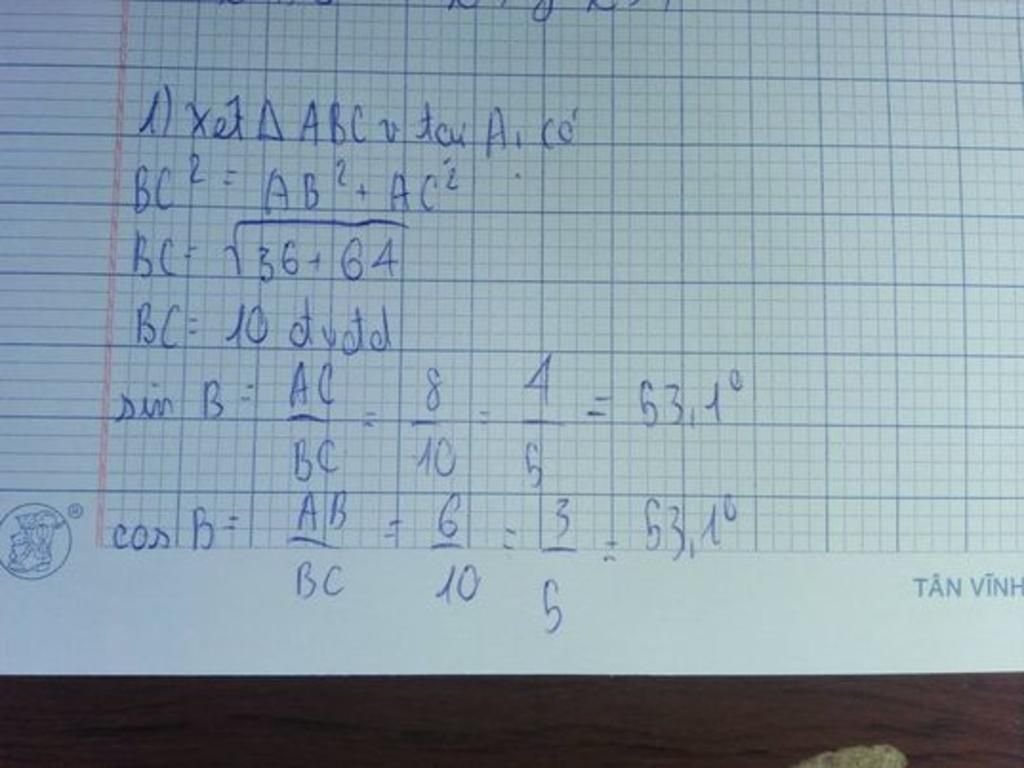 1) Xét Δ ABC v tại A, có
BC² = AB² + AC²
BC = √36 + 64
BC = 10 đvđd
sin B = AC/BC = 8/10 = 4/5 = 53,1°
cos B = AB/BC = 6/10 = 3/5 = 53,1°
TÂN VĨNH